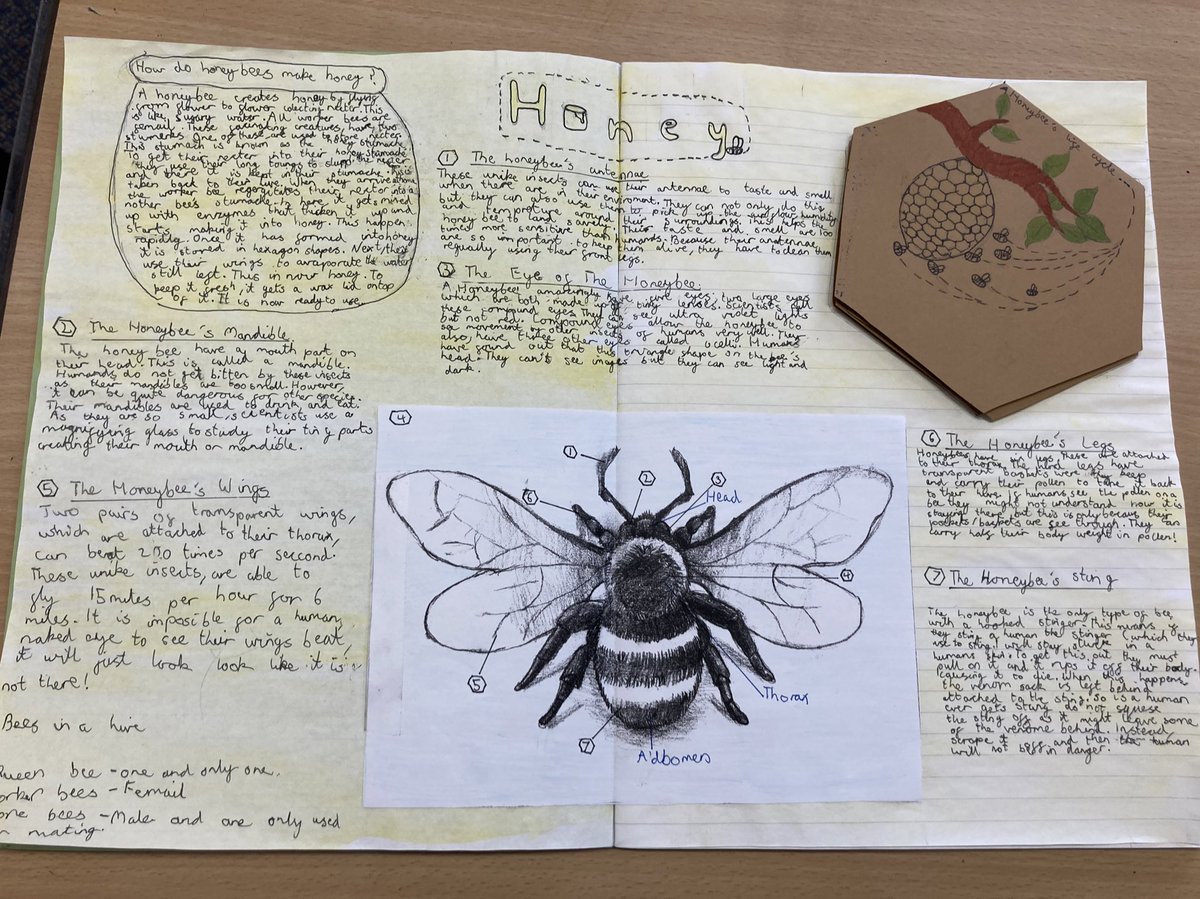 How do honeybees make honey?
A honeybee creates honey by flying
from flower to flower colecting necter. This
is like sugary water. All worker bees are
femail. These facinating creatures, have two
stumachs. One of these are used to store necter.
This stumach is known as the honey stumache.
To get their necter into their honey stumache
they use their long toungs to slupp the necter
and there it is kept in their stumache. This is
taken back to their hive. When they arrive at home
the worker bee regorgitites their nector into a
nother bee's stumache. In here it gets mixed
up with enzymes that thicken it up and
starts making it into honey. This happens
rapidly. Once it has formed into honey
it is stored in hexagon shapes. Next, they
use their wings to avraporate the water
still left. This is now honey. To
keep it fresh, it gets a wax lid on top
of it. It is now ready to use.
Honey
1 The honeybee's antennae
These unike insects can use their antennae to taste and smell
when there are in their enviroment. They can not only do this
but they can also use them to pick up the
and interpret around surroundings. This helps the
honey bee to hunt and their taste and smell are 100
times more sensitive than humands. Because their anatennae
are so important to help them alive, they have to clean them
regually using their front legs.
3 The Eye of The Honeybee.
A Honeybee amazingly have five eyes, two large eyes
which are both made of tiny lenses. Scientists call
these compound eyes. They can see ultra violet lights
but not red. Compound eyes allow the honeybee to
se movement of other insects of humans very well. They
also have three other eyes called ocelli. Humans
have found out that this triangle shape on the bee's
head. They can't see images but they can see light and
dark.
A Honeybee's life cycle...
2 The Honeybee's Mandible
The honey bee have a mouth part on
their head. This is called a mandible.
Humands do not get bitten by these insects
as their mandibles are too small. However,
it can be quite dangerous for other species.
Their mandibles are used to drink and eat.
As they are so small, scientists use a
magnifying glass to study their tiny parts
creating their mouth or mandible.
5 The Honeybee's Wings
Two pairs of transparent wings,
which are attached to their thorax,
can beat 200 times per second.
These unike insects, are able to
fly 15 miles per hour for 6
miles. It is imposible for a human,
naked eye to see their wings beat,
it will just look look like it is
not there!
Bees in a hive
Queen bee - one and only one.
orker bees - Femail
one bees - Male and are only used
mating.
4
1
2
3
6
Head
4
5
Thorax
7
A'dbomen
6 The Honeybee's Legs
Honeybees have six legs. These are attached
to their thorax. The hind legs have
transparent baskets were they keep
and carry their pollen to take it back
to their hive. If humans see the pollen on a
bee they might not understand how it is
staying there but this is only because their
pockets/baskets are see through. They can
carry half their body weight in pollen!
7 The Honeybee's sting
The honeybee is the only type of bee
with a hooked stinger. This means if
they sting a human the stinger (which they
use to sting) will stay stuck in a
humans skin. To get this out they must
pull on it and it rips it off their body.
causing it to die. When this happens
the venom sack is left behind
attached to the sting. So is a human
ever gets stung do not squese
the sting off as it might leave some
of the venome behind. Instead,
scrape it off and then the human
will not be in danger.